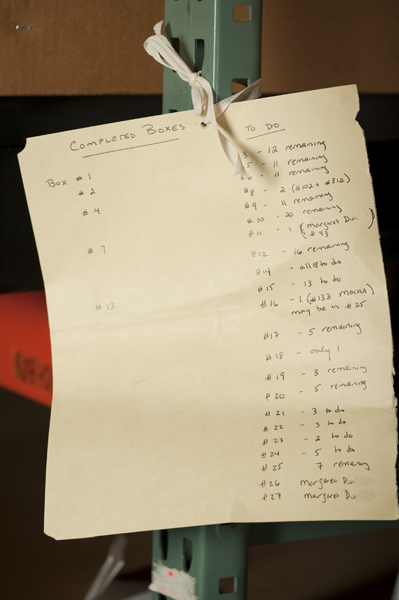 COMPLETED BOXES
TO DO
Box # 1
# 2
# 4
# 7
# 13
3 - 12 remaining
5 - 11 remaining
6 - 11 remaining
#8 - 2 (#102 + #312)
#9 - 11 remaining
#10 - 20 remaining
#11 - 1 (margaret Dun.
#43)
#12 - 16 remaining
#14 - all 18 to do
#15 - 13 to do
#16 - 1 (#133 MOCHA)
may be in #25
#17 - 5 remaining
#18 - only 1
#19 - 3 remaining
#20 - 5 remaining
#21 - 3 to do
#22 - 3 to do
#23 - 2 to do
#24 - 5 to do
#25 7 remaining
#26 margaret Du
#27 margaret Du